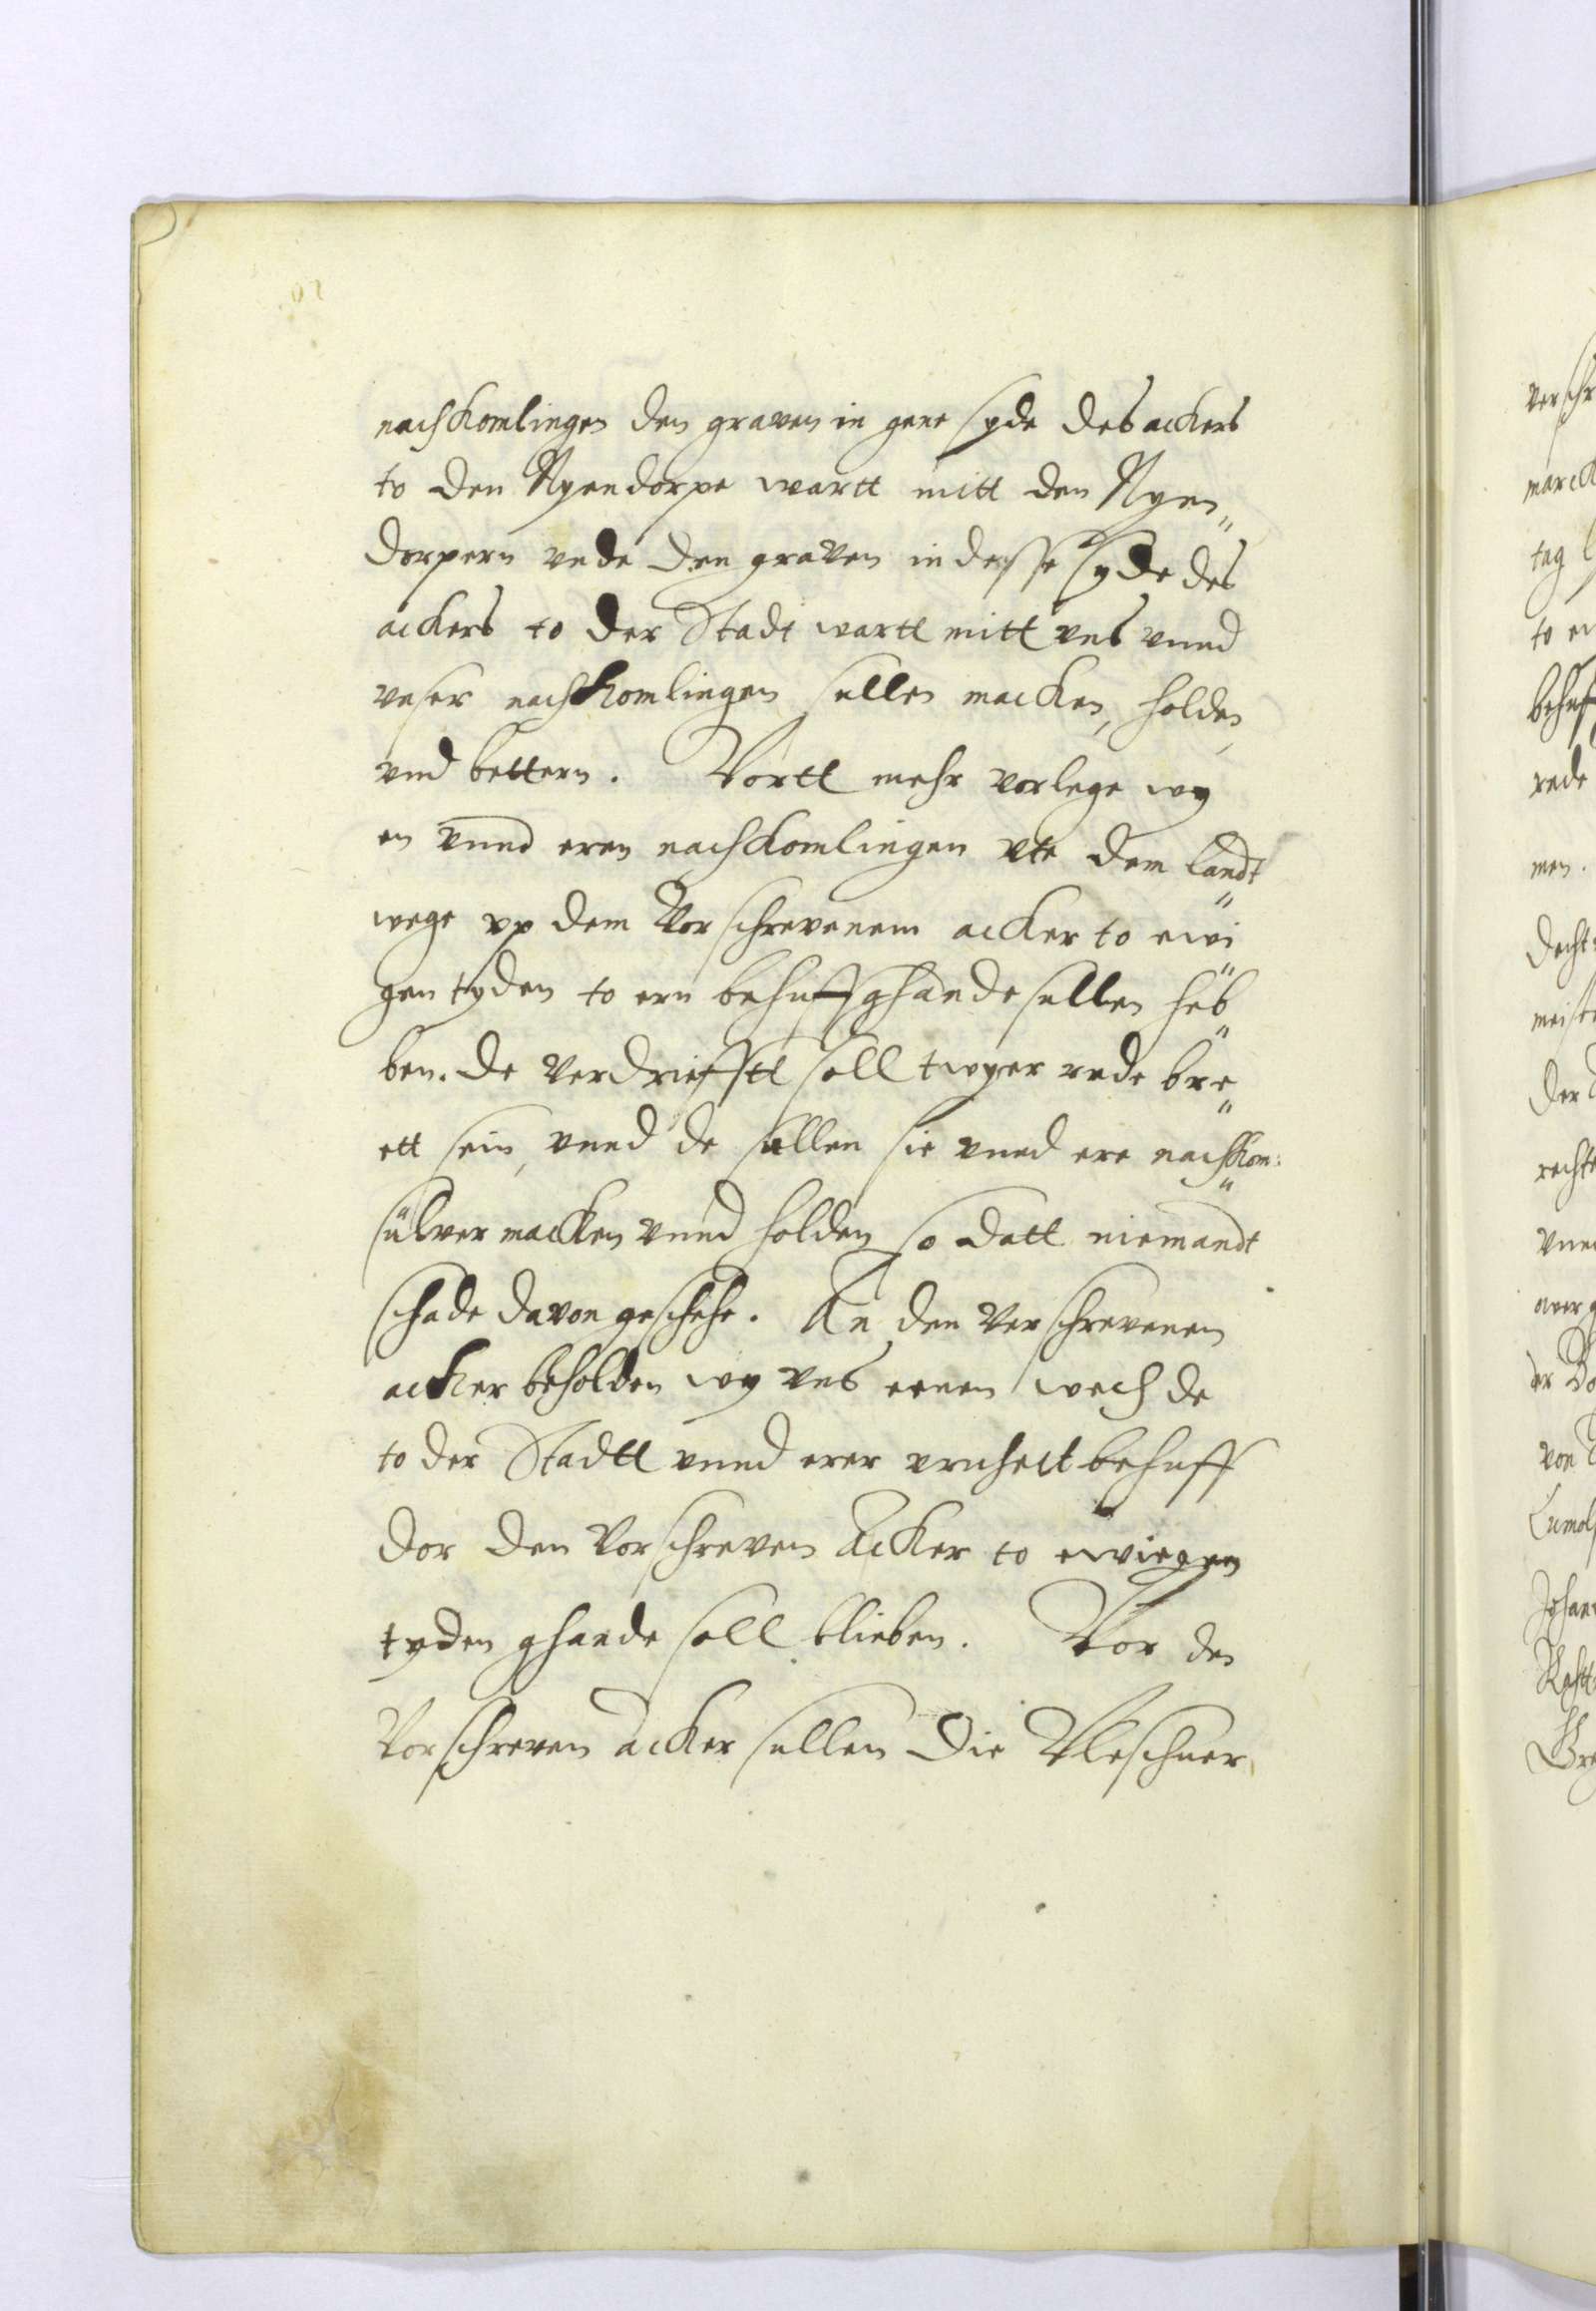 nachkomlingen den graven in gene syde des ackers
to den Nyendorpe wartt mitt den Nyen„
dorpern vnde den graven in desse syde des
ackers to der Stadt wartt mitt vns vnnd
vnser nachkomlingen sullen macken, holden,
vnd bettern. Vortt mehr vorlege wy
en vnnd eren nachkomlingen vte dem landt„
wege vp dem Vorschrevenem acker to ewi„
gen tyden to ern behuff ghande sullen heb„
ben. de verdriefftt soll twyer rode bre„
ett sein, vnnd de sullen sie vnnd ere nachkom:„
sülver macken vnnd holden so datt niemandt
schade davon geschehe. An den verschrevenen
acker beholden wy vns eenen wech de
to der Stadtt vnnd erer vryheit behuff
dor den vorschreven Acker to ewiegen
tyden ghande soll blieben. Vor den
Vorschreven acker sullen die
verschr
marck
tag
to
behuff
rede
men.
der
recht
vnnd
aver
von